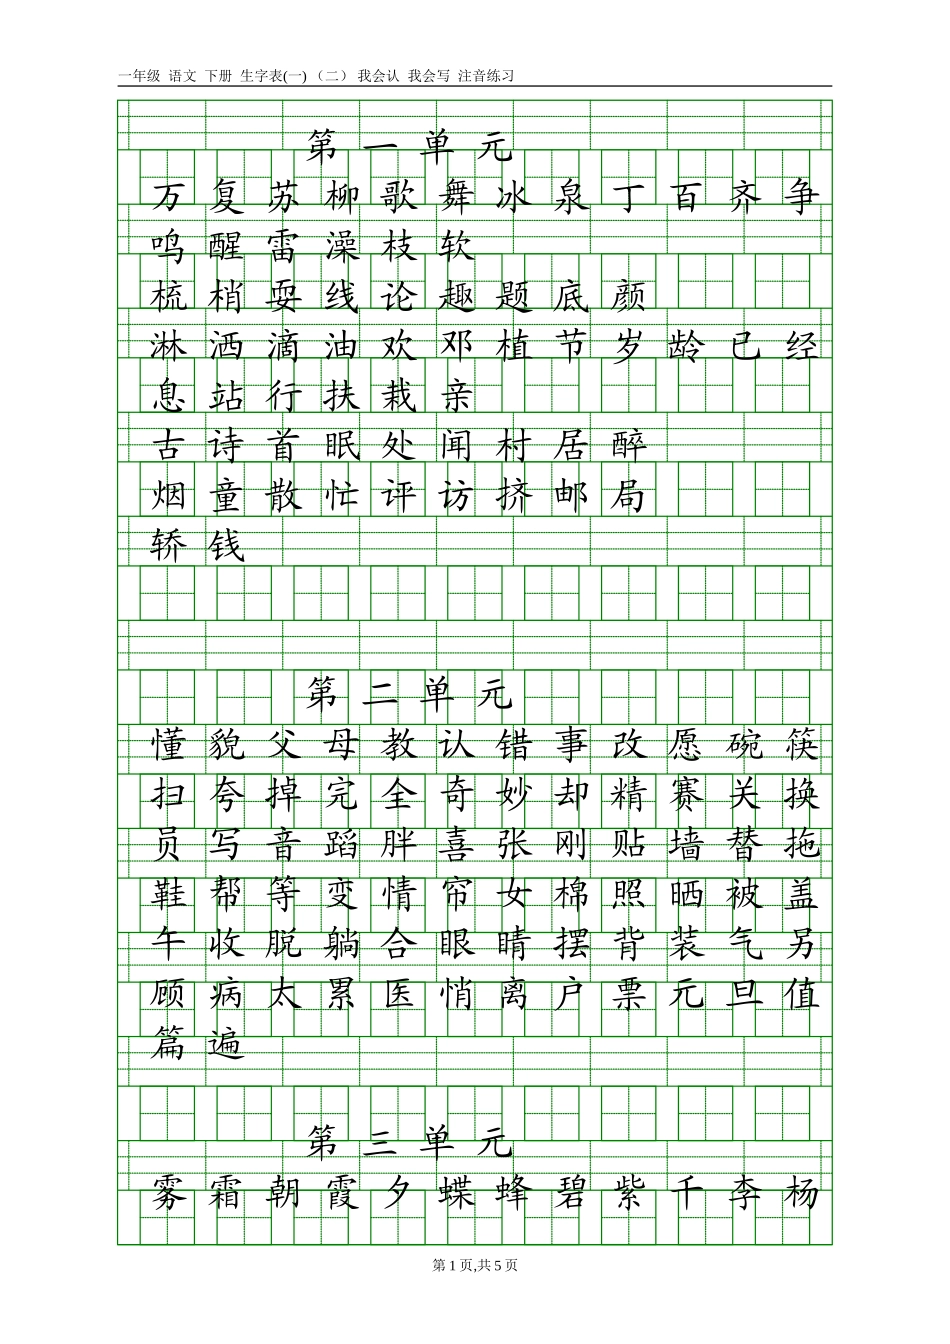 一年级 语文 下册 生字表(一) （二） 我会认 我会写 注音练习
第 一 单 元
万 复 苏 柳 歌 舞 冰 泉 丁 百 齐 争
鸣 醒 雷 澡 枝 软
梳 梢 耍 线 论 趣 题 底 颜
淋 洒 滴 油 欢 邓 植 节 岁 龄 已 经
息 站 行 扶 栽 亲
古 诗 首 眠 处 闻 村 居 醉
烟 童 散 忙 评 访 挤 邮 局
轿 钱
第 二 单 元
懂 貌 父 母 教 认 错 事 改 愿 碗 筷
扫 夸 掉 完 全 奇 妙 却 精 赛 关 换
员 写 音 蹈 胖 喜 张 刚 贴 墙 替 拖
鞋 帮 等 变 情 帘 女 棉 照 晒 被 盖
午 收 脱 躺 合 眼 睛 摆 背 装 气 另
顾 病 太 累 医 悄 离 户 票 元 旦 值
篇 遍
第 三 单 元
雾 霜 朝 霞 夕 蝶 蜂 碧 紫 千 李 杨
第 1 页,共 5 页